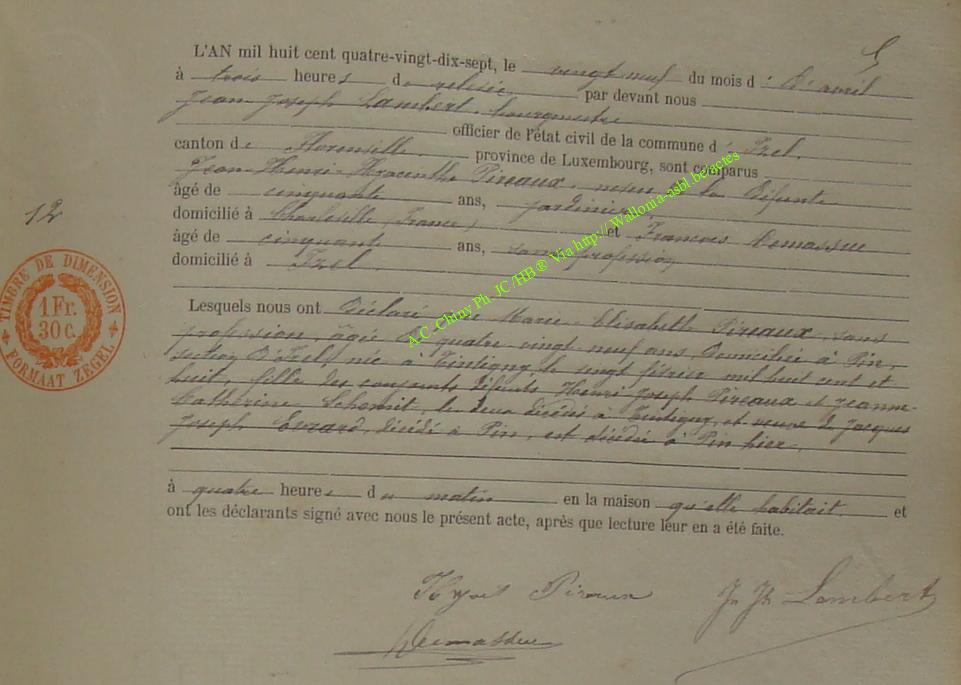 L'AN mil huit cent quatre-vingt-dix-sept, le vingt neuf du mois d' avril
à trois heures de relevée par devant nous
Jean Joseph Lambert, bourgmestre
officier de l'état civil de la commune d' Izel,
canton de Florenville province de Luxembourg, sont comparus
Jean Henri Hyacinthe Pireaux, neveu de la défunte
âgé de cinquante ans, jardinier
domicilié à Charleville (France) et François Demasseu
âgé de cinquante ans, sans profession
domicilié à Izel.
Lesquels nous ont déclaré que Marie Elisabeth Pireaux, sans
profession, âgée de quatre vingt neuf ans, domiciliée à Pin,
section d'Izel, née à Tintigny, le vingt février mil huit cent et
huit, fille des conjoints défunts Henri Joseph Pireaux et Jeanne
Catherine Schomit, les deux décédés à Tintigny, et veuve de Jacques
Joseph Evrard, décédé à Pin, est décédée à Pin hier
à quatre heures du matin en la maison qu'elle habitait. et
ont les déclarants signé avec nous le présent acte, après que lecture leur en a été faite.
12
TIMBRE DE DIMENSION
1 Fr.
30 c.
FORMAAT ZEGEL
A.C. Chiny Ph. JC /HB ® Via http://Wallonia-asbl.be/actes
Pireaux
J. Jh. Lambert
Demasseu